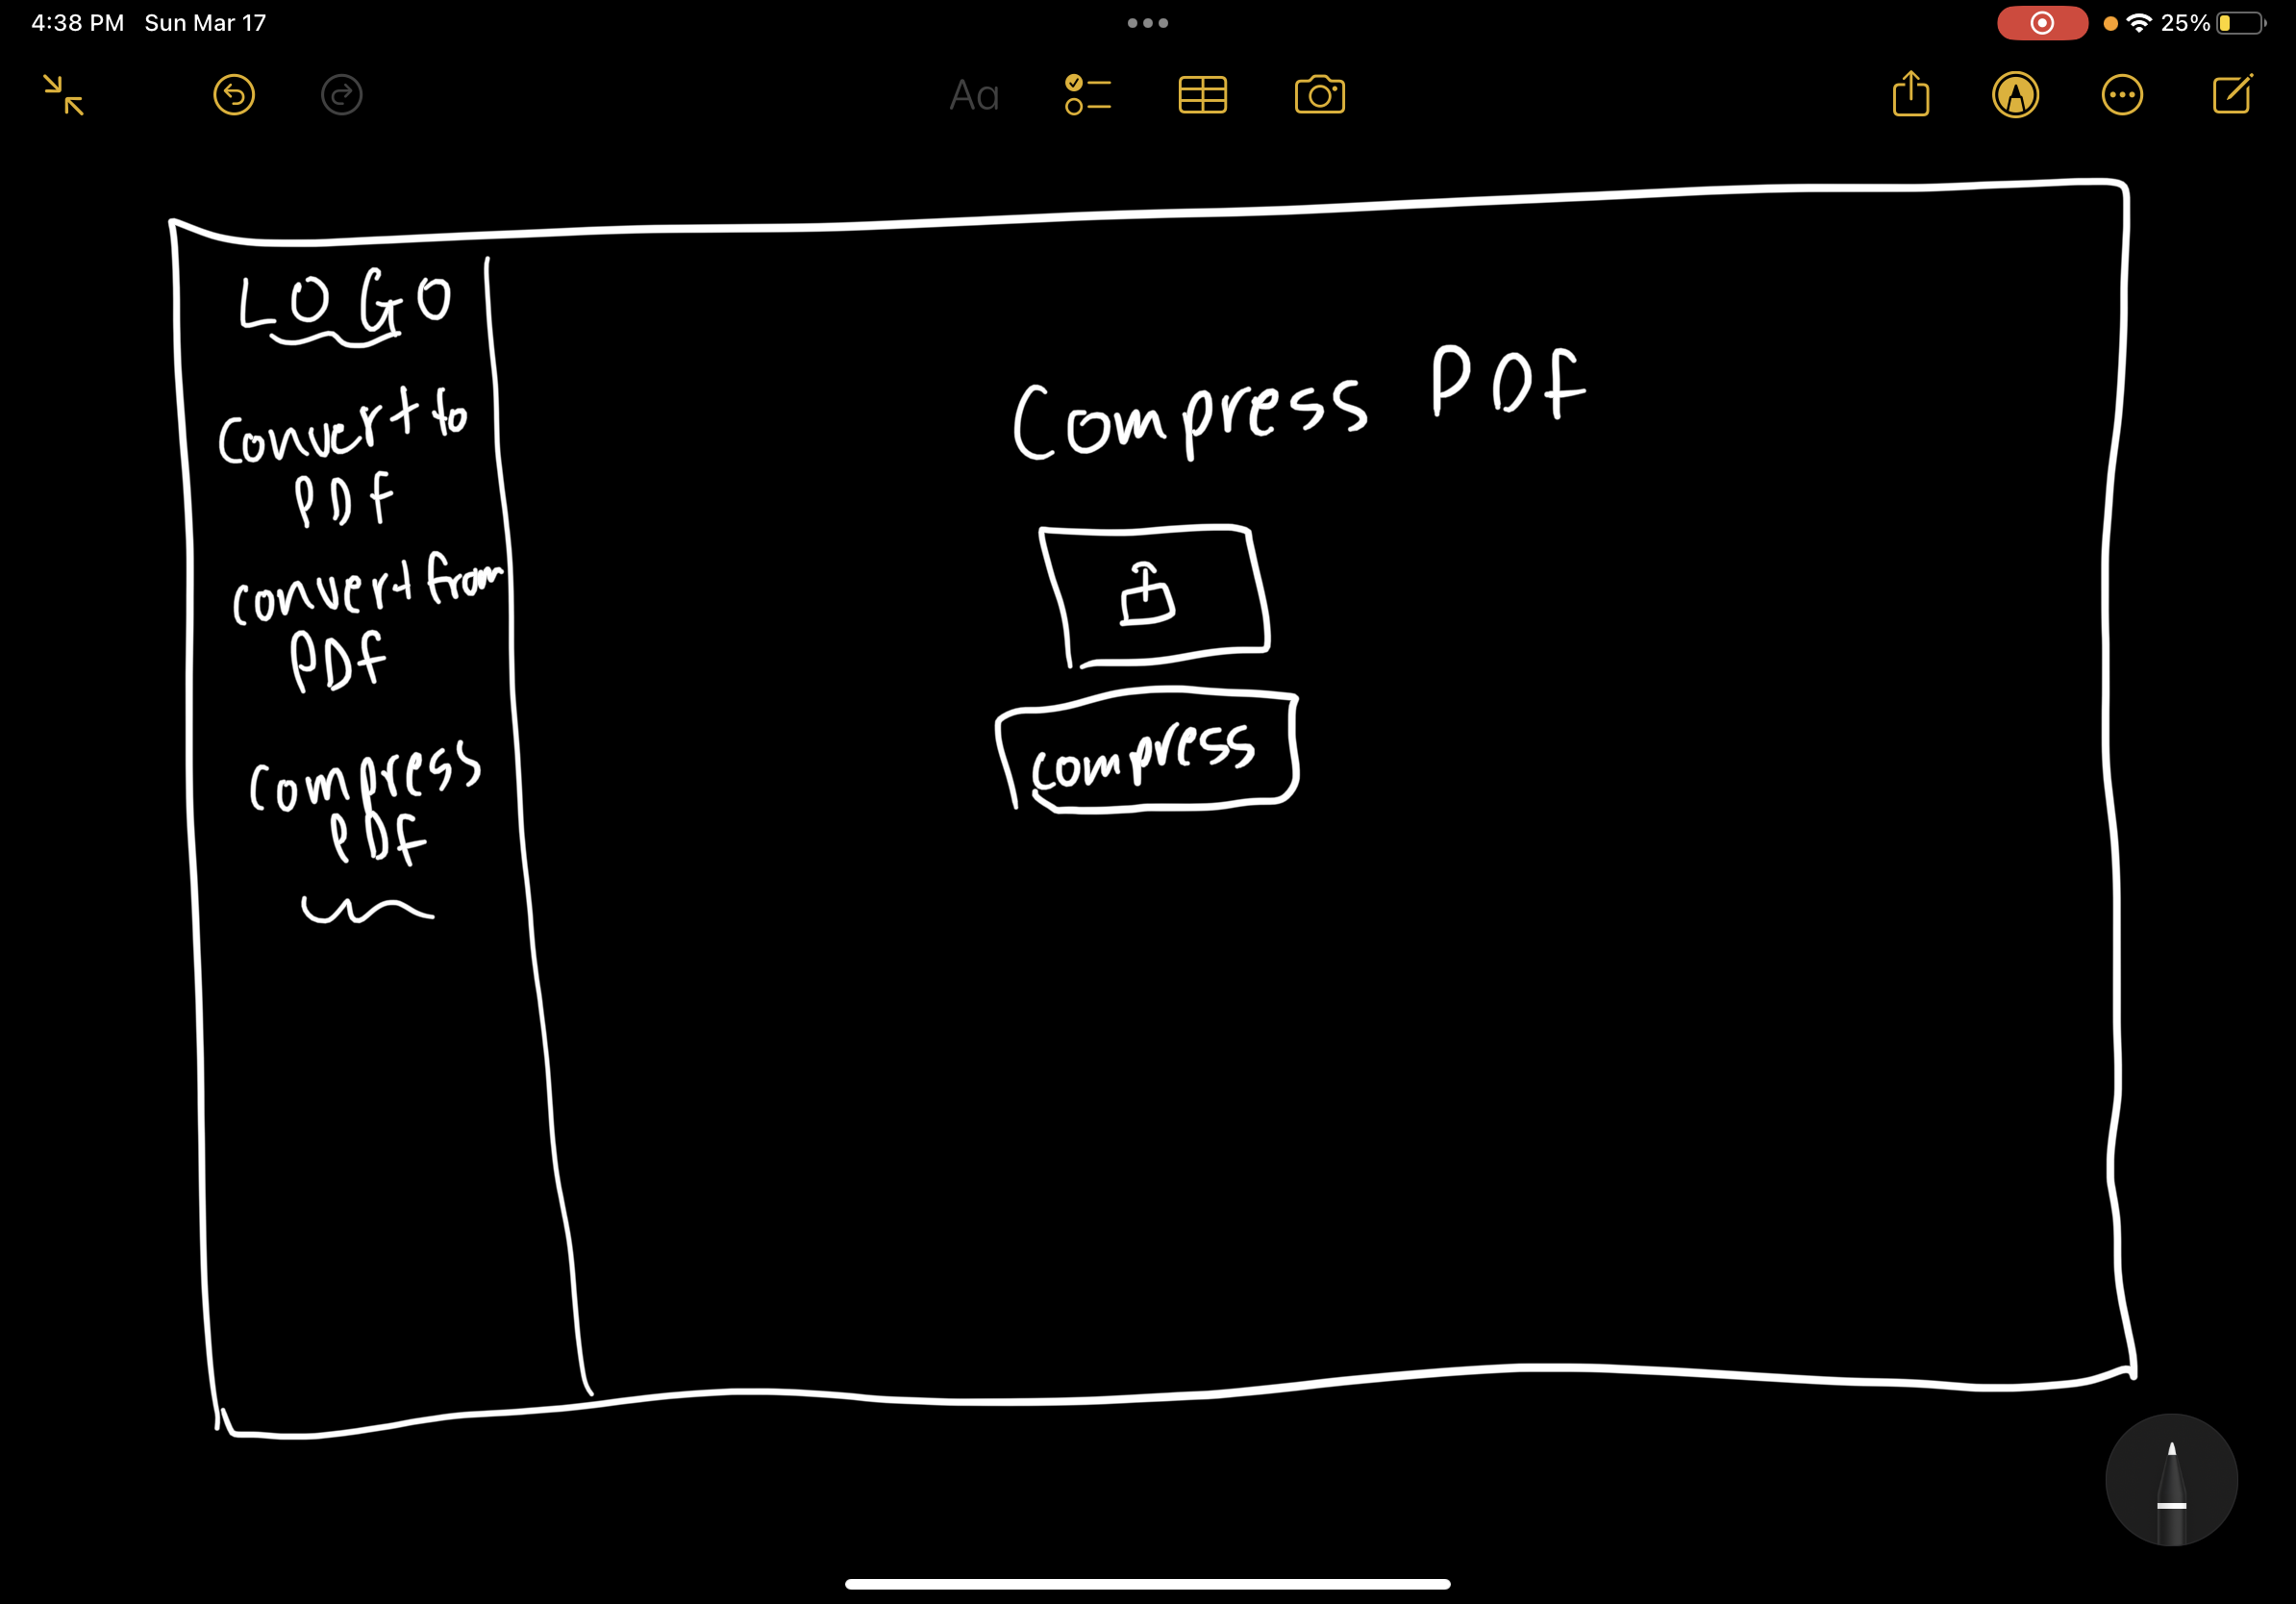 4:38 PM Sun Mar 17
25%
Aa
LOGO
Convert to
PDF
Convert from
PDF
Compress
PDF
Compress PDF
compress